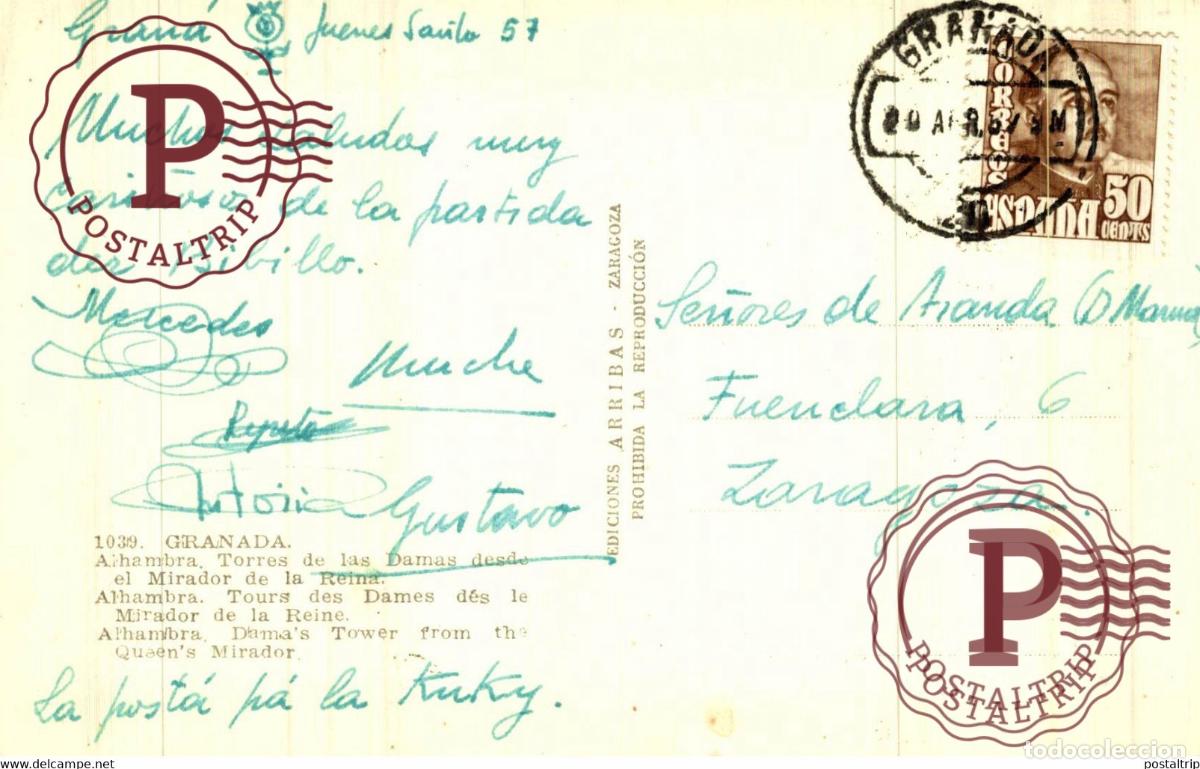 Graná Jueves Santo 57
Muchos saludos muy
cariñosos de la partida
del
Mercedes
Muche
Pepito
Antonia
Gustavo
1039. GRANADA.
Alhambra. Torres de las Damas desde
el Mirador de la Reina.
Alhambra. Tours des Dames dés le
Mirador de la Reine.
Alhambra. Dama's Tower from the
Queen's Mirador.
La postá pá la Kuky.
EDICIONES ARRIBAS - ZARAGOZA
PROHIBIDA LA REPRODUCCIÓN
GRANADA
CORREOS
ESPAÑA
50
CENTS
Señores de Aranda
Fuenclara, 6
Zaragoza.
P
POSTALTRIP
P
POSTALTRIP
POSTALTRIP
todocoleccion
www.delcampe.net
postaltrip